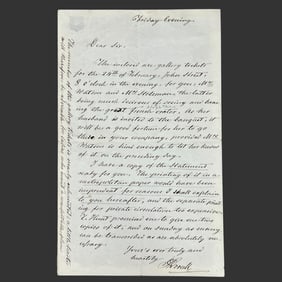 Friday Evening.
Dear Sir.
The inclosed are gallery tickets
for the 24th of February, John Street,
8 o'clock in the evening, for you, Mrs
Watson and Mrs Holeman, the latter
being much desirous of seeing and hear-
ing the great french orator. As her
husband is invited to the banquet, it
will be a good fortune for her to go
there in your company, provided Mrs
Watson is kind enough to let her know
of it on the preceding day.
I have a copy of the Statement
ready for you. The printing of it in a
metropolitan paper would have been
imprudent for reasons I shall explain
to you hereafter, and the separate print-
ing for private circulation too expensive.
T. Hunt promised me to give me two
copies of it, and on sunday as many
can be transcribed as are absolutely ne-
cessary.
Yours ever truly and
heartily